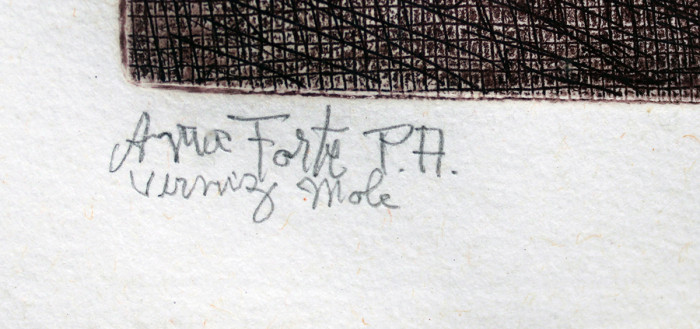 Agua Forte P.A.
Verniz Mole